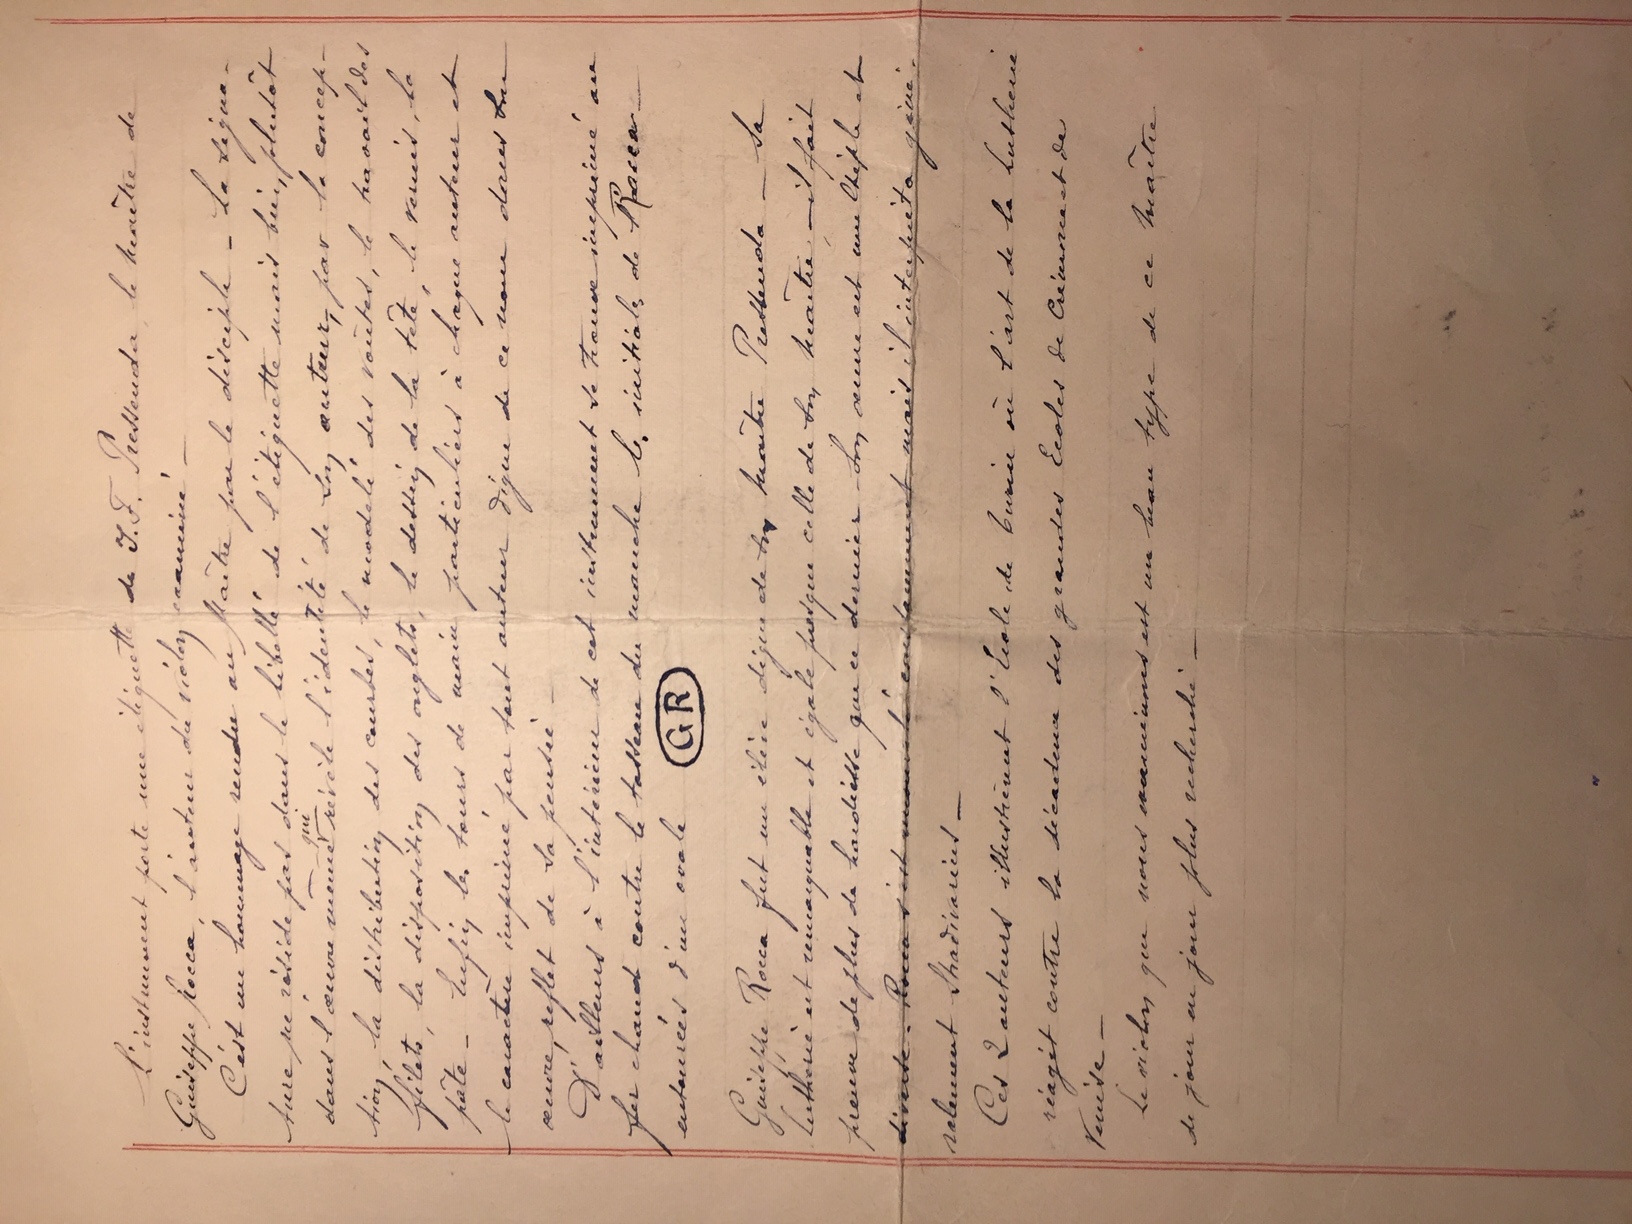 L'instrument porte une étiquette de J.F. Pressenda, le maître de
Guiseppe Rocca, l'auteur du violon examiné —
C'est un hommage rendu au Maître par le disciple — La signa-
ture ne réside pas dans le libellé de l'étiquette mais bien, plutôt
dans l'œuvre même qui révèle l'identité de son auteur, par la concep-
tion, la distribution des courbes, le modelé des voûtes, le travail des
filets, la disposition des onglets, le dessin de la tête, le vernis, la
pâte — Enfin les tours de main particuliers à chaque auteur et
le caractère imprimé par tout auteur digne de ce nom dans son
œuvre, reflet de sa pensée —
D'ailleurs à l'intérieur de cet instrument se trouve imprimé au
fer chaud contre le tasseau du manche les initiales de Rocca —
entourées d'un ovale GR
Guiseppe Rocca fut un élève digne de son maître Pressenda — Sa
lutherie est remarquable et égale presque celle de son maître — il fait
preuve de plus de hardiesse que ce dernier — Son œuvre est multiple et
diverse. Rocca s'est renouvelé constamment mais il interpréta géné-
ralement Stradivarius —
Ces 2 auteurs illustrèrent l'Ecole de Turin où l'art de la lutherie
réagit contre la décadence des grandes Ecoles de Crémone et de
Venise —
Le violon que nous examinons est un beau type de ce maître
de jour en jour plus recherché —